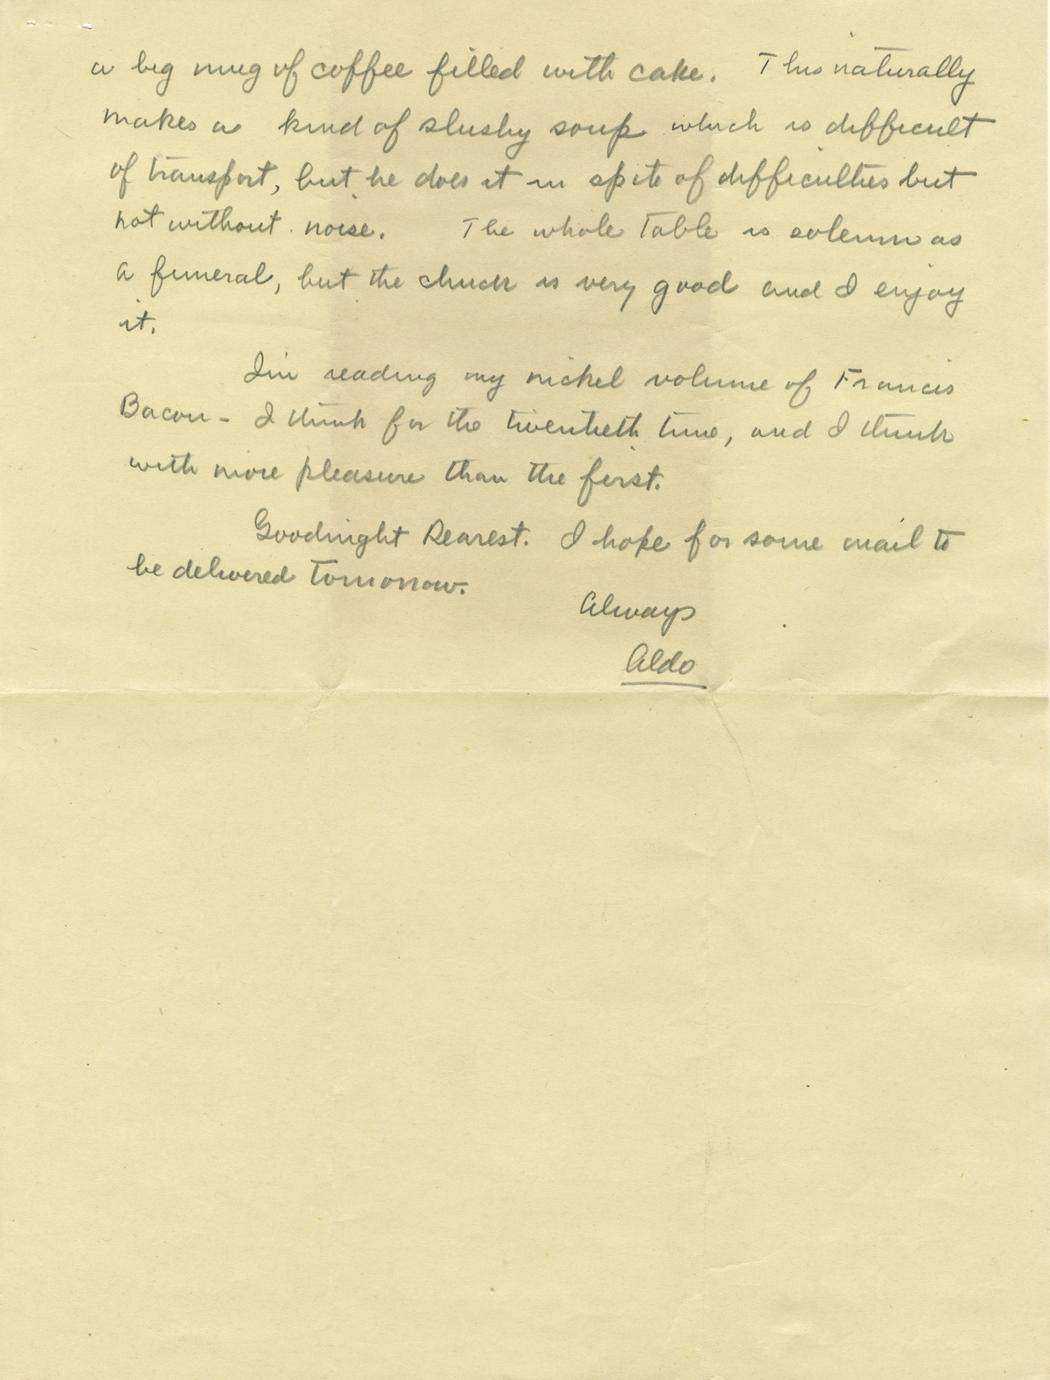 a big mug of coffee filled with cake. This naturally
makes a kind of slushy soup which is difficult
of transport, but he does it in spite of difficulties but
not without noise. The whole table is solemn as
a funeral, but the chuck is very good and I enjoy
it.
I'm reading my nickel volume of Francis
Bacon - I think for the twentieth time, and I think
with more pleasure than the first.
Goodnight Dearest. I hope for some mail to
be delivered tomorrow.
Always
Aldo